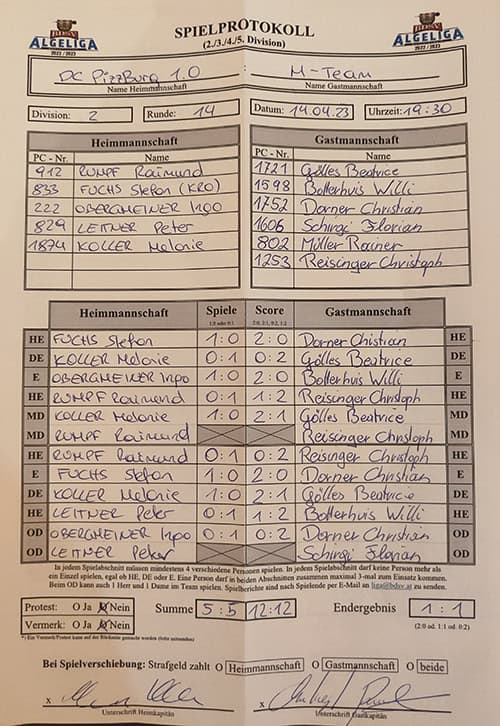 ALGELIGA
2022 / 2023
SPIELPROTOKOLL
(2./3./4./5. Division)
ALGELIGA
2022 / 2023
DC PizzBurg 1.0 : M-Team
Name Heimmannschaft Name Gastmannschaft
Division: 2 Runde: 14 Datum: 14.04.23 Uhrzeit: 19:30
Heimmannschaft Gastmannschaft
PC - Nr. Name PC - Nr. Name
912 RUMPF Raimund 1721 Gölles Beatrice
833 FUCHS Stefan (KRO) 1598 Botterhuis Willi
222 OBERGMEINER Ingo 1752 Dorner Christian
829 LEITNER Peter 1606 Schirgi Florian
1874 KOLLER Melanie 802 Müller Rainer
1253 Reisinger Christoph
Heimmannschaft Spiele Score Gastmannschaft
1:0 oder 0:1 2:0, 2:1, 0:2, 1:2
HE FUCHS Stefan 1:0 2:0 Dorner Chistian HE
DE KOLLER Melanie 0:1 0:2 Gölles Beatrice DE
E OBERGMEINER Ingo 1:0 2:0 Botterhuis Willi E
HE RUMPF Raimund 0:1 1:2 Reisinger Christoph HE
MD KOLLER Melanie 1:0 2:1 Gölles Beatrice MD
MD RUMPF Raimund Reisinger Christoph MD
HE RUMPF Raimund 0:1 0:2 Reisinger Christoph HE
E FUCHS Stefan 1:0 2:0 Dorner Christian E
DE KOLLER Melanie 1:0 2:1 Gölles Beatrice DE
HE LEITNER Peter 0:1 1:2 Botterhuis Willi HE
OD OBERGMEINER Ingo 0:1 0:2 Dorner Christian OD
OD LEITNER Peter Schirgi Florian OD
In jedem Spielabschnitt müssen mindestens 4 verschiedene Personen spielen. In jedem Spielabschnitt darf keine Person mehr als
ein Einzel spielen, egal ob HE, DE oder E. Eine Person darf in beiden Abschnitten zusammen maximal 3-mal zum Einsatz kommen.
Beim OD kann auch 1 Herr und 1 Dame im Team spielen. Spielberichte sind nach Spielende per E-Mail an liga@bdsv.at zu senden.
Protest: O Ja O Nein Summe 5:5 12:12 Endergebnis 1:1
Vermerk: O Ja O Nein (2:0 od. 1:1 od. 0:2)
Bei Spielverschiebung: Strafgeld zahlt O Heimmannschaft O Gastmannschaft O beide
x x
Unterschrift Heimkapitän Unterschrift Gastkapitän